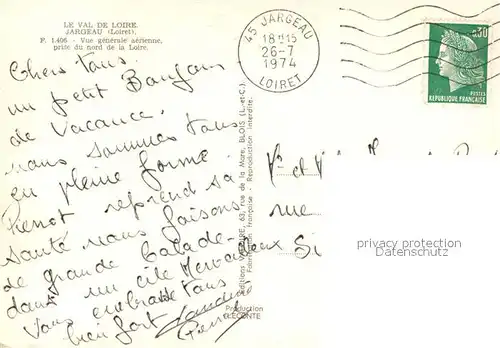 LE VAL DE LOIRE.
JARGEAU (Loiret).
P. 1.406 - Vue générale aérienne,
prise du nord de la Loire.
Chers Tous.
un petit Bonjour
de Vacance.
nous sommes tous
en pleine forme.
Pierrot reprend sa
santé nous faisons
de grande Balade-
dans un site Merveilleux
Vous embrasse tous
bien fort
Pierrot
45 JARGEAU
18H15
26-7
1974
LOIRET
0,30
POSTES
REPUBLIQUE FRANÇAISE
63, rue de la Mare, BLOIS (L.-et-C.)
Fabrication française - Reproduction interdite.
Production
LECONTE
rue
privacy protection
Datenschutz